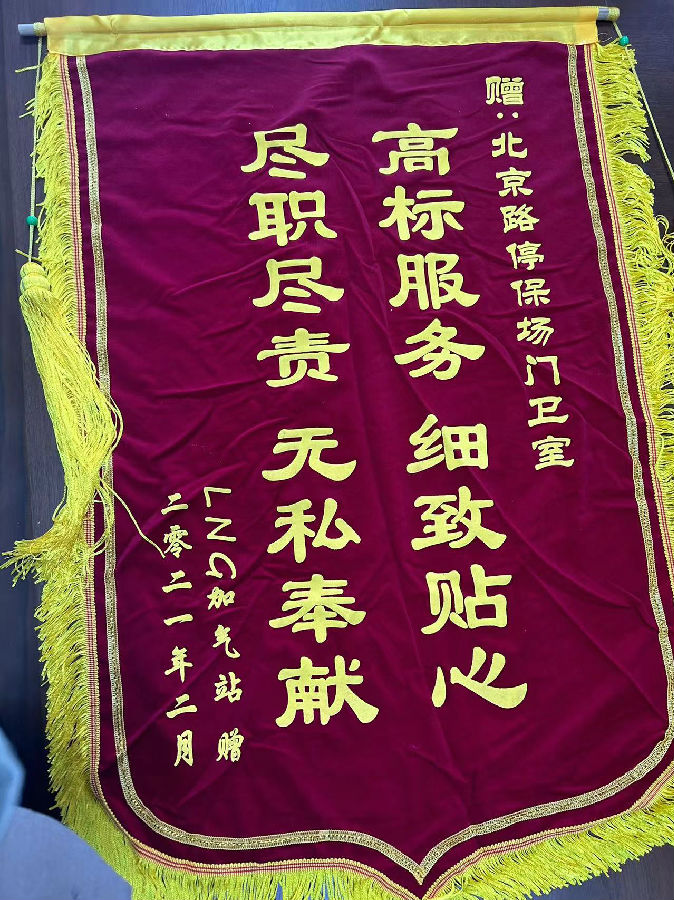 赠:北京路停保场门卫室
高标服务 细致贴心
尽职尽责 无私奉献
LNG加气站 赠
二零二一年二月